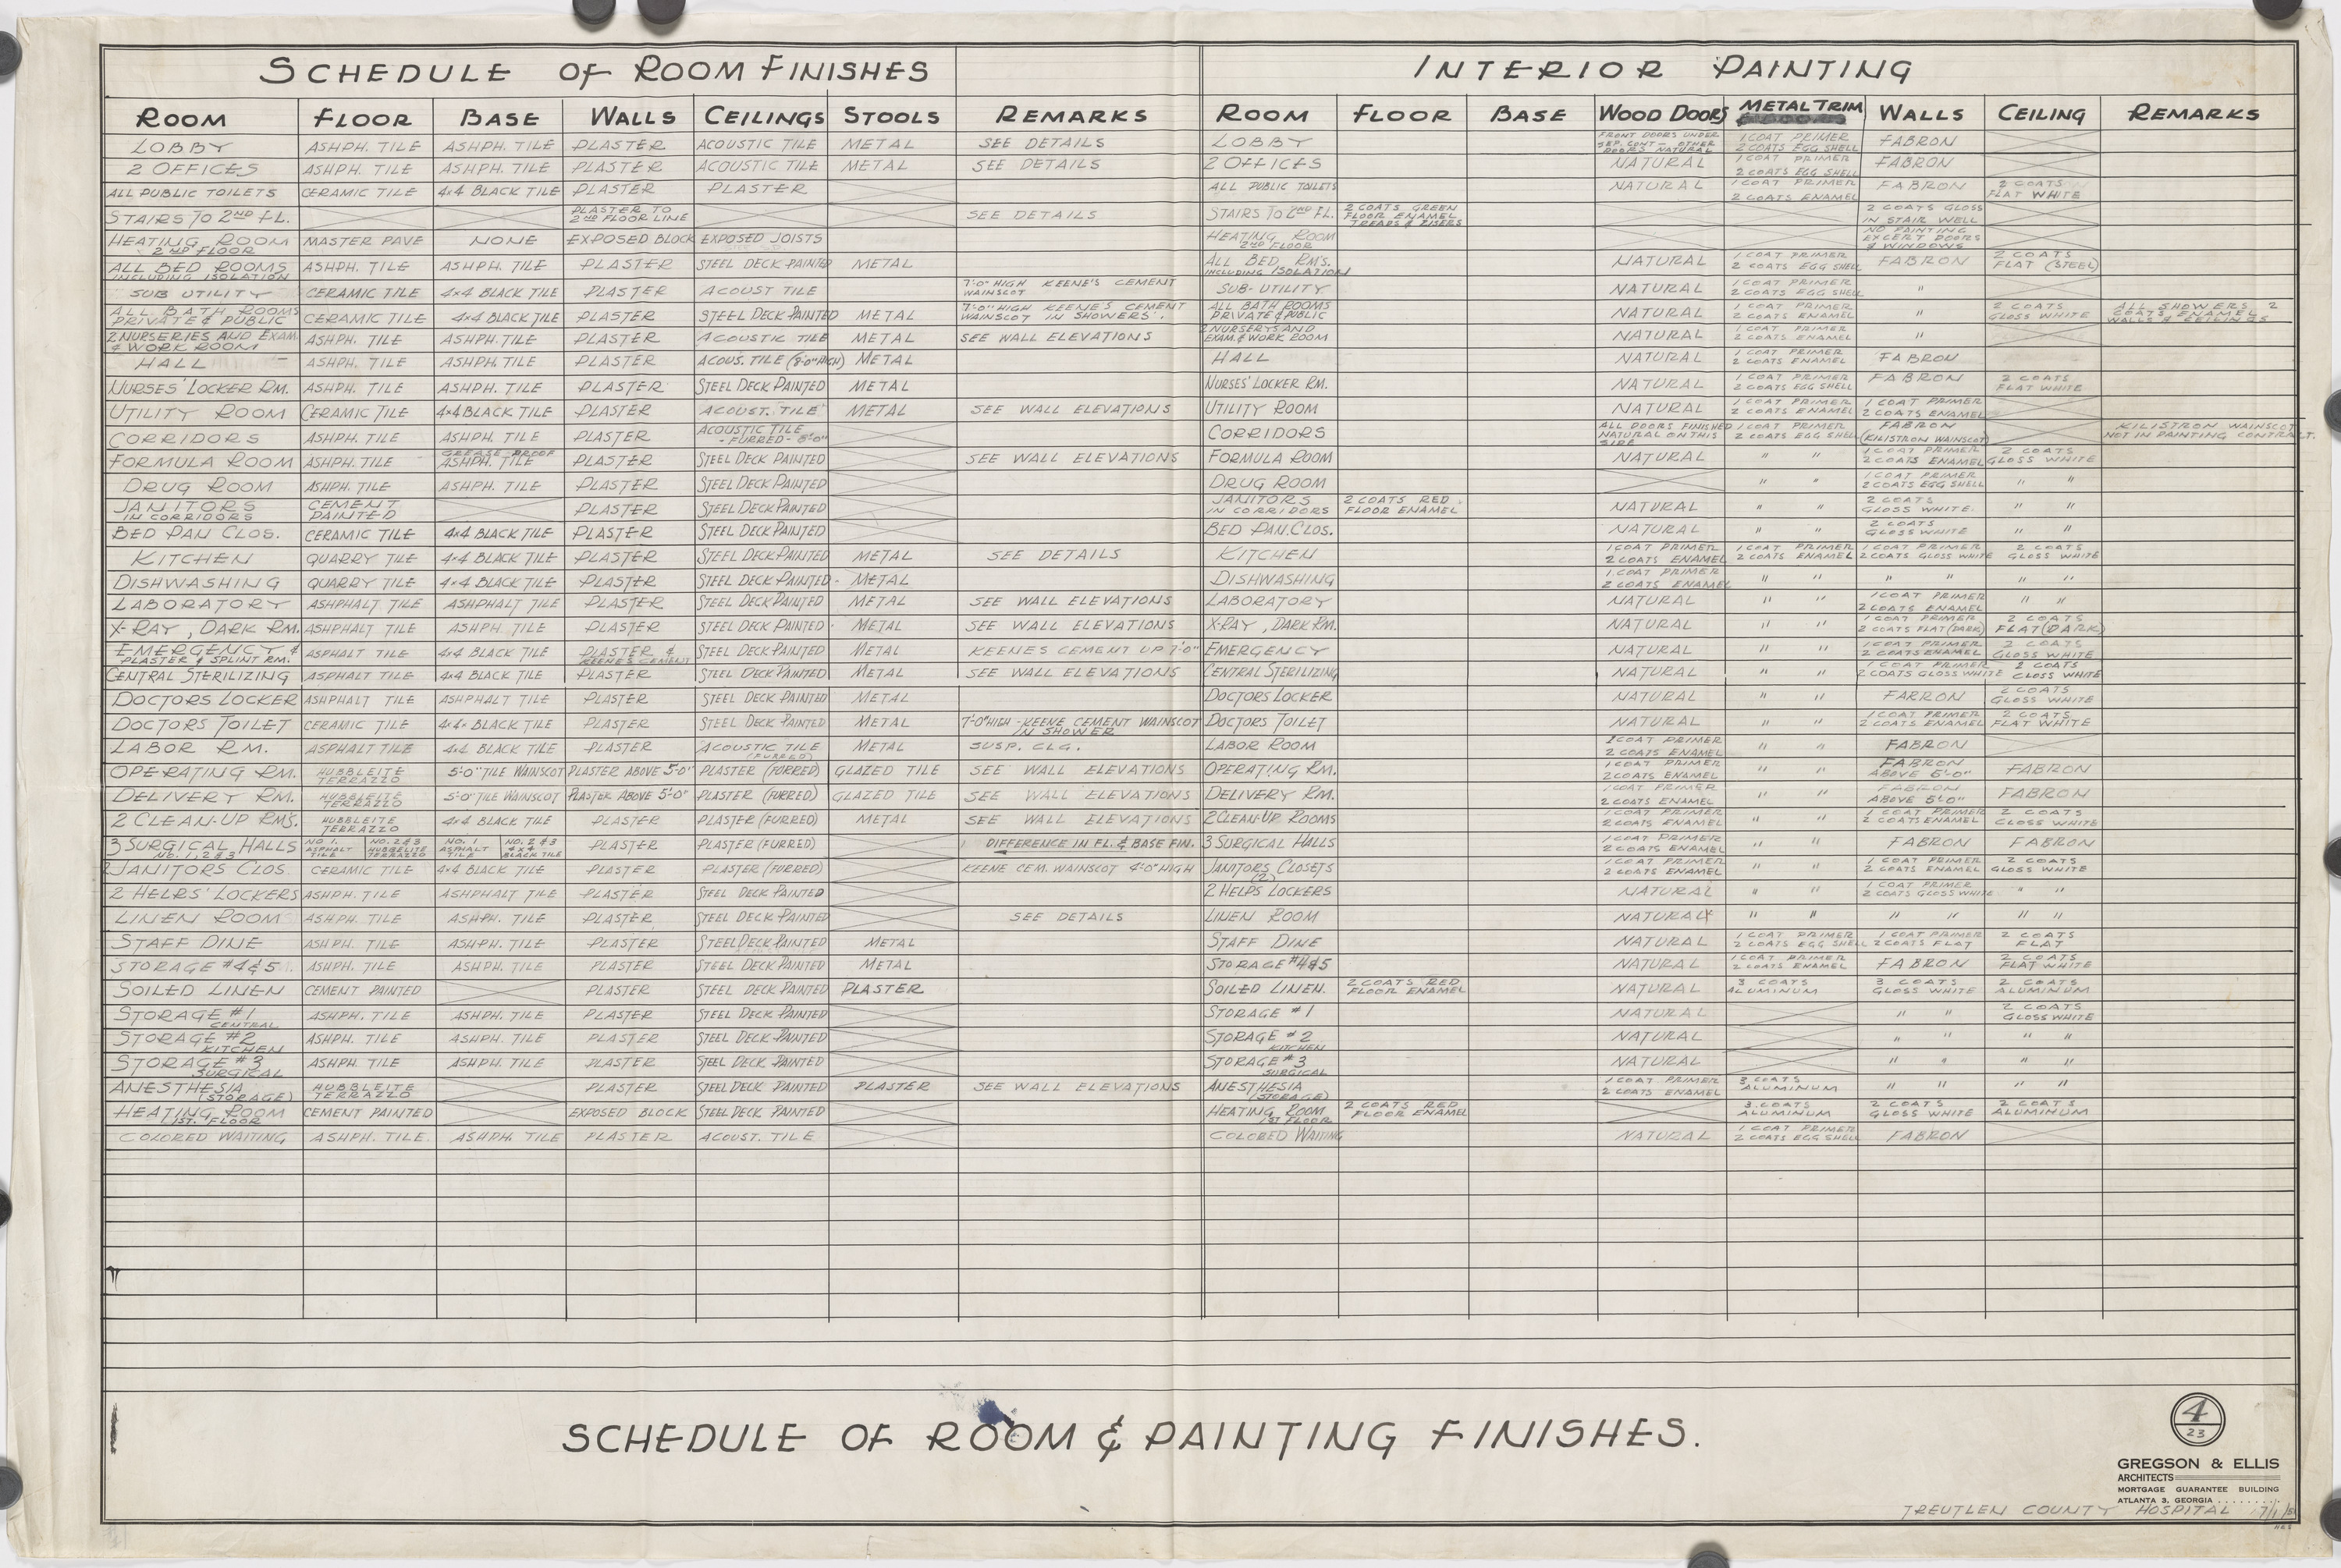 SCHEDULE OF ROOM FINISHES
INTERIOR PAINTING
ROOM FLOOR BASE WALLS CEILINGS STOOLS REMARKS ROOM FLOOR BASE WOOD DOORS METAL TRIM WALLS CEILING REMARKS
LOBBY ASHPH. TILE ASHPH. TILE PLASTER ACOUSTIC TILE METAL SEE DETAILS LOBBY FRONT DOORS UNDER SEP. CONT— OTHER DOORS NATURAL 1 COAT PRIMER 2 COATS EGG SHELL FABRON
2 OFFICES ASHPH. TILE ASHPH. TILE PLASTER ACOUSTIC TILE METAL SEE DETAILS 2 OFFICES NATURAL 1 COAT PRIMER 2 COATS EGG SHELL FABRON
ALL PUBLIC TOILETS CERAMIC TILE 4x4 BLACK TILE PLASTER PLASTER ALL PUBLIC TOILETS NATURAL 1 COAT PRIMER 2 COATS ENAMEL FABRON 2 COATS FLAT WHITE
STAIRS TO 2ND FL. PLASTER TO 2ND FLOOR LINE SEE DETAILS STAIRS TO 2ND FL. 2 COATS GREEN FLOOR ENAMEL TREADS & RISERS 2 COATS GLOSS IN STAIR WELL
HEATING ROOM 2ND FLOOR MASTER PAVE NONE EXPOSED BLOCK EXPOSED JOISTS HEATING ROOM 2ND FLOOR NO PAINTING EXCEPT DOORS & WINDOWS
ALL BED ROOMS INCLUDING ISOLATION ASHPH. TILE ASHPH. TILE PLASTER STEEL DECK PAINTED METAL ALL BED RM'S. INCLUDING ISOLATION NATURAL 1 COAT PRIMER 2 COATS EGG SHELL FABRON 2 COATS FLAT (STEEL)
SUB UTILITY CERAMIC TILE 4x4 BLACK TILE PLASTER ACOUST TILE 7'-0" HIGH KEENE'S CEMENT WAINSCOT SUB-UTILITY NATURAL 1 COAT PRIMER 2 COATS EGG SHELL "
ALL BATH ROOMS PRIVATE & PUBLIC CERAMIC TILE 4x4 BLACK TILE PLASTER STEEL DECK PAINTED METAL 7'-0" HIGH KEENE'S CEMENT WAINSCOT IN SHOWERS. ALL BATH ROOMS PRIVATE & PUBLIC NATURAL 1 COAT PRIMER 2 COATS ENAMEL " 2 COATS GLOSS WHITE ALL SHOWERS 2 COATS ENAMEL WALLS & CEILINGS
2 NURSERIES AND EXAM. & WORK ROOM ASHPH. TILE ASHPH. TILE PLASTER ACOUSTIC TILE METAL SEE WALL ELEVATIONS 2 NURSERYS AND EXAM. & WORK ROOM NATURAL 1 COAT PRIMER 2 COATS ENAMEL "
HALL ASHPH. TILE ASHPH. TILE PLASTER ACOUS. TILE (8'-0" HIGH) METAL HALL NATURAL 1 COAT PRIMER 2 COATS ENAMEL FABRON
NURSES' LOCKER RM. ASHPH. TILE ASHPH. TILE PLASTER STEEL DECK PAINTED METAL NURSES' LOCKER RM. NATURAL 1 COAT PRIMER 2 COATS EGG SHELL FABRON 2 COATS FLAT WHITE
UTILITY ROOM CERAMIC TILE 4x4 BLACK TILE PLASTER ACOUST. TILE METAL SEE WALL ELEVATIONS UTILITY ROOM NATURAL 1 COAT PRIMER 2 COATS ENAMEL 1 COAT PRIMER 2 COATS ENAMEL
CORRIDORS ASHPH. TILE ASHPH. TILE PLASTER ACOUSTIC TILE - FURRED - 8'-0" CORRIDORS ALL DOORS FINISHED NATURAL ON THIS SIDE 1 COAT PRIMER 2 COATS EGG SHELL FABRON (KILISTRON WAINSCOT) KILISTRON WAINSCOT NOT IN PAINTING CONTRACT.
FORMULA ROOM ASHPH. TILE GREASE PROOF ASHPH. TILE PLASTER STEEL DECK PAINTED SEE WALL ELEVATIONS FORMULA ROOM NATURAL " " 1 COAT PRIMER 2 COATS ENAMEL 2 COATS GLOSS WHITE
DRUG ROOM ASHPH. TILE ASHPH. TILE PLASTER STEEL DECK PAINTED DRUG ROOM " " 1 COAT PRIMER 2 COATS EGG SHELL " "
JANITORS IN CORRIDORS CEMENT PAINTED PLASTER STEEL DECK PAINTED JANITORS IN CORRIDORS 2 COATS RED FLOOR ENAMEL NATURAL " " 2 COATS GLOSS WHITE. " "
BED PAN CLOS. CERAMIC TILE 4x4 BLACK TILE PLASTER STEEL DECK PAINTED BED PAN. CLOS. NATURAL " " 2 COATS GLOSS WHITE " "
KITCHEN QUARRY TILE 4x4 BLACK TILE PLASTER STEEL DECK PAINTED METAL SEE DETAILS KITCHEN 1 COAT PRIMER 2 COATS ENAMEL 1 COAT PRIMER 2 COATS ENAMEL 1 COAT PRIMER 2 COATS GLOSS WHITE 2 COATS GLOSS WHITE
DISHWASHING QUARRY TILE 4x4 BLACK TILE PLASTER STEEL DECK PAINTED METAL DISHWASHING 1 COAT PRIMER 2 COATS ENAMEL " " " " " "
LABORATORY ASHPHALT TILE ASHPHALT TILE PLASTER STEEL DECK PAINTED METAL SEE WALL ELEVATIONS LABORATORY NATURAL " " 1 COAT PRIMER 2 COATS ENAMEL " "
X-RAY, DARK RM. ASHPHALT TILE ASHPH TILE PLASTER STEEL DECK PAINTED METAL SEE WALL ELEVATIONS X-RAY, DARK RM. NATURAL " " 1 COAT PRIMER 2 COATS FLAT (DARK) 2 COATS FLAT (DARK)
EMERGENCY & PLASTER & SPLINT RM. ASPHALT TILE 4x4 BLACK TILE PLASTER & KEENE'S CEMENT STEEL DECK PAINTED METAL KEENES CEMENT UP 7'-0" EMERGENCY NATURAL " " 1 COAT PRIMER 2 COATS ENAMEL 2 COATS GLOSS WHITE
CENTRAL STERILIZING ASPHALT TILE 4x4 BLACK TILE PLASTER STEEL DECK PAINTED METAL SEE WALL ELEVATIONS CENTRAL STERILIZING NATURAL " " 1 COAT PRIMER 2 COATS GLOSS WHITE 2 COATS GLOSS WHITE
DOCTORS LOCKER ASHPHALT TILE ASHPHALT TILE PLASTER STEEL DECK PAINTED METAL DOCTORS LOCKER NATURAL " " FABRON 2 COATS GLOSS WHITE
DOCTORS TOILET CERAMIC TILE 4x4 BLACK TILE PLASTER STEEL DECK PAINTED METAL 7'-0" HIGH - KEENE CEMENT WAINSCOT IN SHOWER DOCTORS TOILET NATURAL " " 1 COAT PRIMER 2 COATS ENAMEL 2 COATS FLAT WHITE
LABOR RM. ASPHALT TILE 4x4 BLACK TILE PLASTER ACOUSTIC TILE (FURRED) METAL SUSP. CLG. LABOR ROOM 1 COAT PRIMER 2 COATS ENAMEL " " FABRON
OPERATING RM. HUBBLEITE TERRAZZO 5'-0" TILE WAINSCOT PLASTER ABOVE 5'-0" PLASTER (FURRED) GLAZED TILE SEE WALL ELEVATIONS OPERATING RM. 1 COAT PRIMER 2 COATS ENAMEL " " FABRON ABOVE 5'-0" FABRON
DELIVERY RM. HUBBLEITE TERRAZZO 5'-0" TILE WAINSCOT PLASTER ABOVE 5'-0" PLASTER (FURRED) GLAZED TILE SEE WALL ELEVATIONS DELIVERY RM. 1 COAT PRIMER 2 COATS ENAMEL " " FABRON ABOVE 5'-0" FABRON
2 CLEAN-UP RM'S. HUBBLEITE TERRAZZO 4x4 BLACK TILE PLASTER PLASTER (FURRED) METAL SEE WALL ELEVATIONS 2 CLEAN-UP ROOMS 1 COAT PRIMER 2 COATS ENAMEL " " 1 COAT PRIMER 2 COATS ENAMEL 2 COATS GLOSS WHITE
3 SURGICAL HALLS NO. 1, 2 & 3 NO 1. ASPHALT TILE NO. 2 & 3 HUBBELITE TERRAZZO NO. 1. ASPHALT TILE NO. 2 & 3 4x4 BLACK TILE PLASTER PLASTER (FURRED) DIFFERENCE IN FL. & BASE FIN. 3 SURGICAL HALLS 1 COAT PRIMER 2 COATS ENAMEL " " FABRON FABRON
2 JANITORS CLOS. CERAMIC TILE 4x4 BLACK TILE PLASTER PLASTER (FURRED) KEENE CEM. WAINSCOT 4'-0" HIGH JANITORS CLOSETS (2) 1 COAT PRIMER 2 COATS ENAMEL " " 1 COAT PRIMER 2 COATS ENAMEL 2 COATS GLOSS WHITE
2 HELRS' LOCKERS ASHPH. TILE ASHPHALT TILE PLASTER STEEL DECK PAINTED 2 HELPS LOCKERS NATURAL " " 1 COAT PRIMER 2 COATS GLOSS WHITE " "
LINEN ROOM ASHPH. TILE ASHPH. TILE PLASTER STEEL DECK PAINTED SEE DETAILS LINEN ROOM NATURAL " " " " " "
STAFF DINE ASHPH. TILE ASHPH. TILE PLASTER STEEL DECK PAINTED METAL STAFF DINE NATURAL 1 COAT PRIMER 2 COATS EGG SHELL 1 COAT PRIMER 2 COATS FLAT 2 COATS FLAT
STORAGE #4 & 5 ASHPH. TILE ASHPH. TILE PLASTER STEEL DECK PAINTED METAL STORAGE #4 & 5 NATURAL 1 COAT PRIMER 2 COATS ENAMEL FABRON 2 COATS FLAT WHITE
SOILED LINEN CEMENT PAINTED PLASTER STEEL DECK PAINTED PLASTER SOILED LINEN. 2 COATS RED FLOOR ENAMEL NATURAL 3 COATS ALUMINUM 3 COATS GLOSS WHITE 2 COATS ALUMINUM
STORAGE #1 CENTRAL ASHPH. TILE ASHPH. TILE PLASTER STEEL DECK PAINTED STORAGE #1 NATURAL " " 2 COATS GLOSS WHITE
STORAGE #2 KITCHEN ASHPH. TILE ASHPH. TILE PLASTER STEEL DECK PAINTED STORAGE #2 KITCHEN NATURAL " " " "
STORAGE #3 SURGICAL ASHPH. TILE ASHPH. TILE PLASTER STEEL DECK PAINTED STORAGE #3 SURGICAL NATURAL " " " "
ANESTHESIA (STORAGE) HUBBLEITE TERRAZZO PLASTER STEEL DECK PAINTED PLASTER SEE WALL ELEVATIONS ANESTHESIA (STORAGE) 1 COAT PRIMER 2 COATS ENAMEL 3 COATS ALUMINUM " " " "
HEATING ROOM 1ST. FLOOR CEMENT PAINTED EXPOSED BLOCK STEEL DECK PAINTED HEATING ROOM 1ST FLOOR 2 COATS RED FLOOR ENAMEL 3 COATS ALUMINUM 2 COATS GLOSS WHITE 2 COATS ALUMINUM
COLORED WAITING ASHPH. TILE. ASHPH. TILE PLASTER ACOUST. TILE COLORED WAITING NATURAL 1 COAT PRIMER 2 COATS EGG SHELL FABRON
SCHEDULE OF ROOM & PAINTING FINISHES.
4
23
GREGSON & ELLIS
ARCHITECTS
MORTGAGE GUARANTEE BUILDING
ATLANTA 3, GEORGIA
TREUTLEN COUNTY HOSPITAL